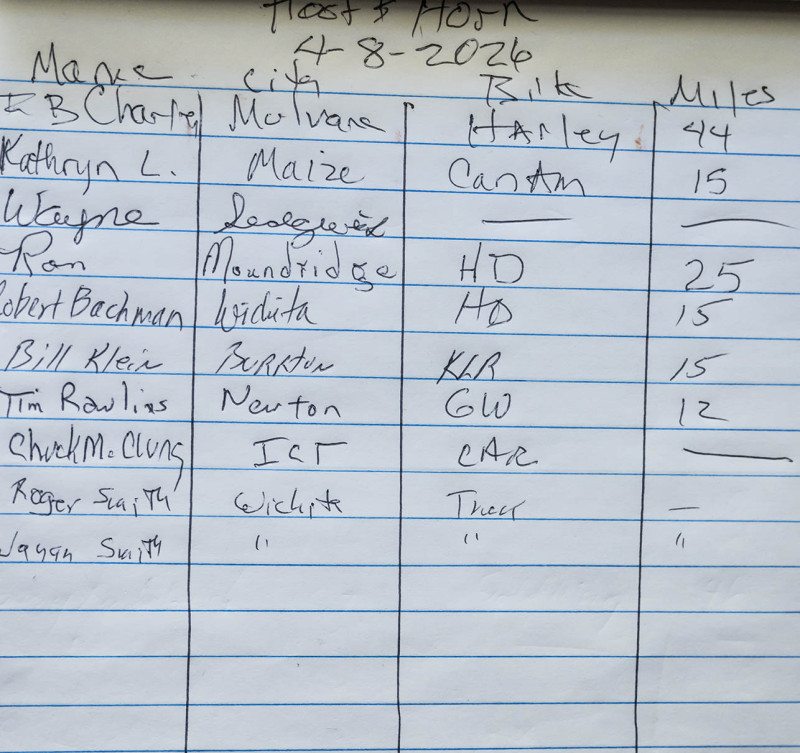 Hoof & Horn
4-8-2026
Name City Bike Miles
B Charte Mulvane Harley 44
Kathryn L. Maize CanAm 15
Wayne Sedgwick — —
Ron Moundridge HD 25
obert Bachman Wichita HD 15
Bill Klein BURRTON KLR 15
Tim Rawlins Newton GW 12
Chuck McClung ICT CAR —
Roger Smith Wichita Truck —
Smith " " "